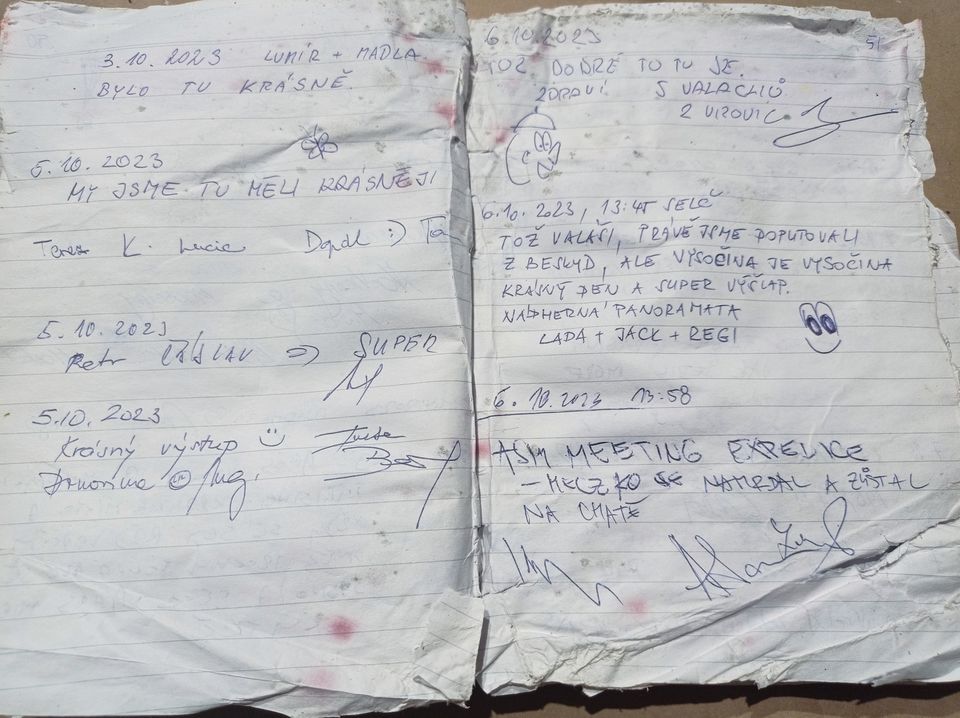 3.10.2023 LUMÍR + MADLA
BYLO TU KRÁSNĚ.
5.10.2023
MY JSME TU MĚLI KRÁSNĚJI
Tereza K. Lucie :)
5.10.2023
Petr => SUPER
5.10.2023
Krásný výstup
Ing.
51
6.10.2023
TOŽ DOBRÉ TO TU JE.
ZDRAVÍ S VALACHŮ
Z VIZOVIC
6.10.2023, 13:47 SELČ
TOŽ VALAŠI, PRÁVĚ JSME DOPUTOVALI
Z BESKYD, ALE VYSOČINA JE VYSOČINA
KRÁSNÝ DEN A SUPER VÝŠLAP.
NÁDHERNÁ PANORAMATA
LADA + JACK + REGI
6.10.2023 13:58
ASM MEETING
- SE NAMRDAL A ZŮSTAL
NA CHATĚ